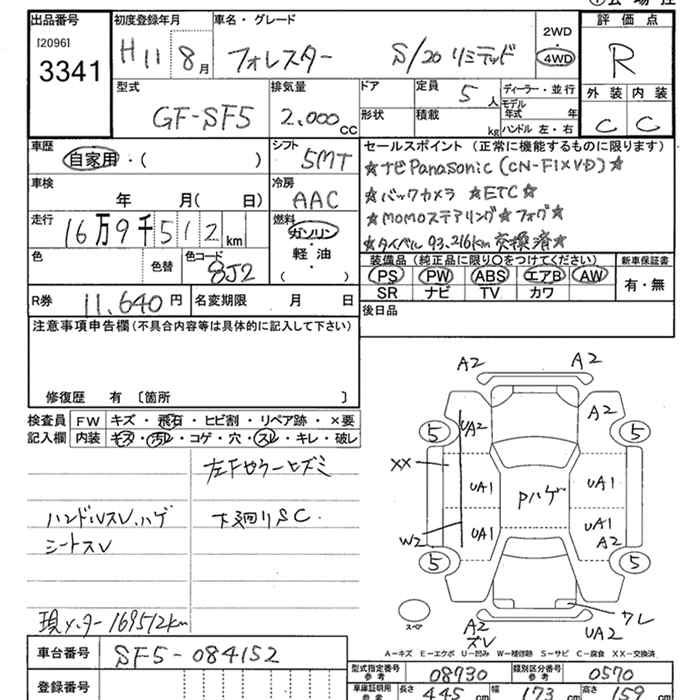 出品番号 初度登録年月 車名・グレード 評価点
[2096] H11 8月 フォレスター S/20 リミテッド 2WD
3341 4WD R
型式 排気量 ドア 定員 5人 ディーラー・並行 外装 内装
GF-SF5 2,000cc 形状 積載 kg モデル年式 年 C C
ハンドル 左・右
車歴 シフト セールスポイント(正常に機能するものに限ります)
自家用・( ) 5MT ☆ナビPanasonic(CN-F1XVD)☆
車検 冷房 ☆バックカメラ ☆ETC☆
年 月( 日) AAC ☆MOMOステアリング☆フォグ☆
走行 燃料 ☆タイベル 93,216km交換済☆
16万9千512km ガソリン・軽油・( )
色 色替 色コード 8J2 装備品(純正品に限り○をつけてください) 新車保証書
PS PW ABS エアB AW 有・無
SR ナビ TV カワ
R券 11,640円 名変期限 月 日 後日品
注意事項申告欄(不具合内容等は具体的に記入して下さい)
修復歴 有 〔箇所 〕
検査員 FW キズ・飛石・ヒビ割・リペア跡・×要
記入欄 内装 キズ・汚レ・コゲ・穴・スレ・キレ・破レ
ハンドルスレ、ハゲ 下廻りSC
シートスレ
現メーター 169512km
A2 A2
A2
5 UA2 5
XX
UA1 Pハゲ UA1
UA1
W2 UA1 A2
5 5
スペア A2 ワレ
ズレ UA2
A-キズ E-エクボ U-凹み W-補修跡 S-サビ C-腐食 XX-交換済
車台番号 SF5-084152
型式指定番号 参考 08930 類別区分番号 参考 0570
登録番号 車庫証明用 参考 長さ 445cm 幅 173cm 高さ 159cm